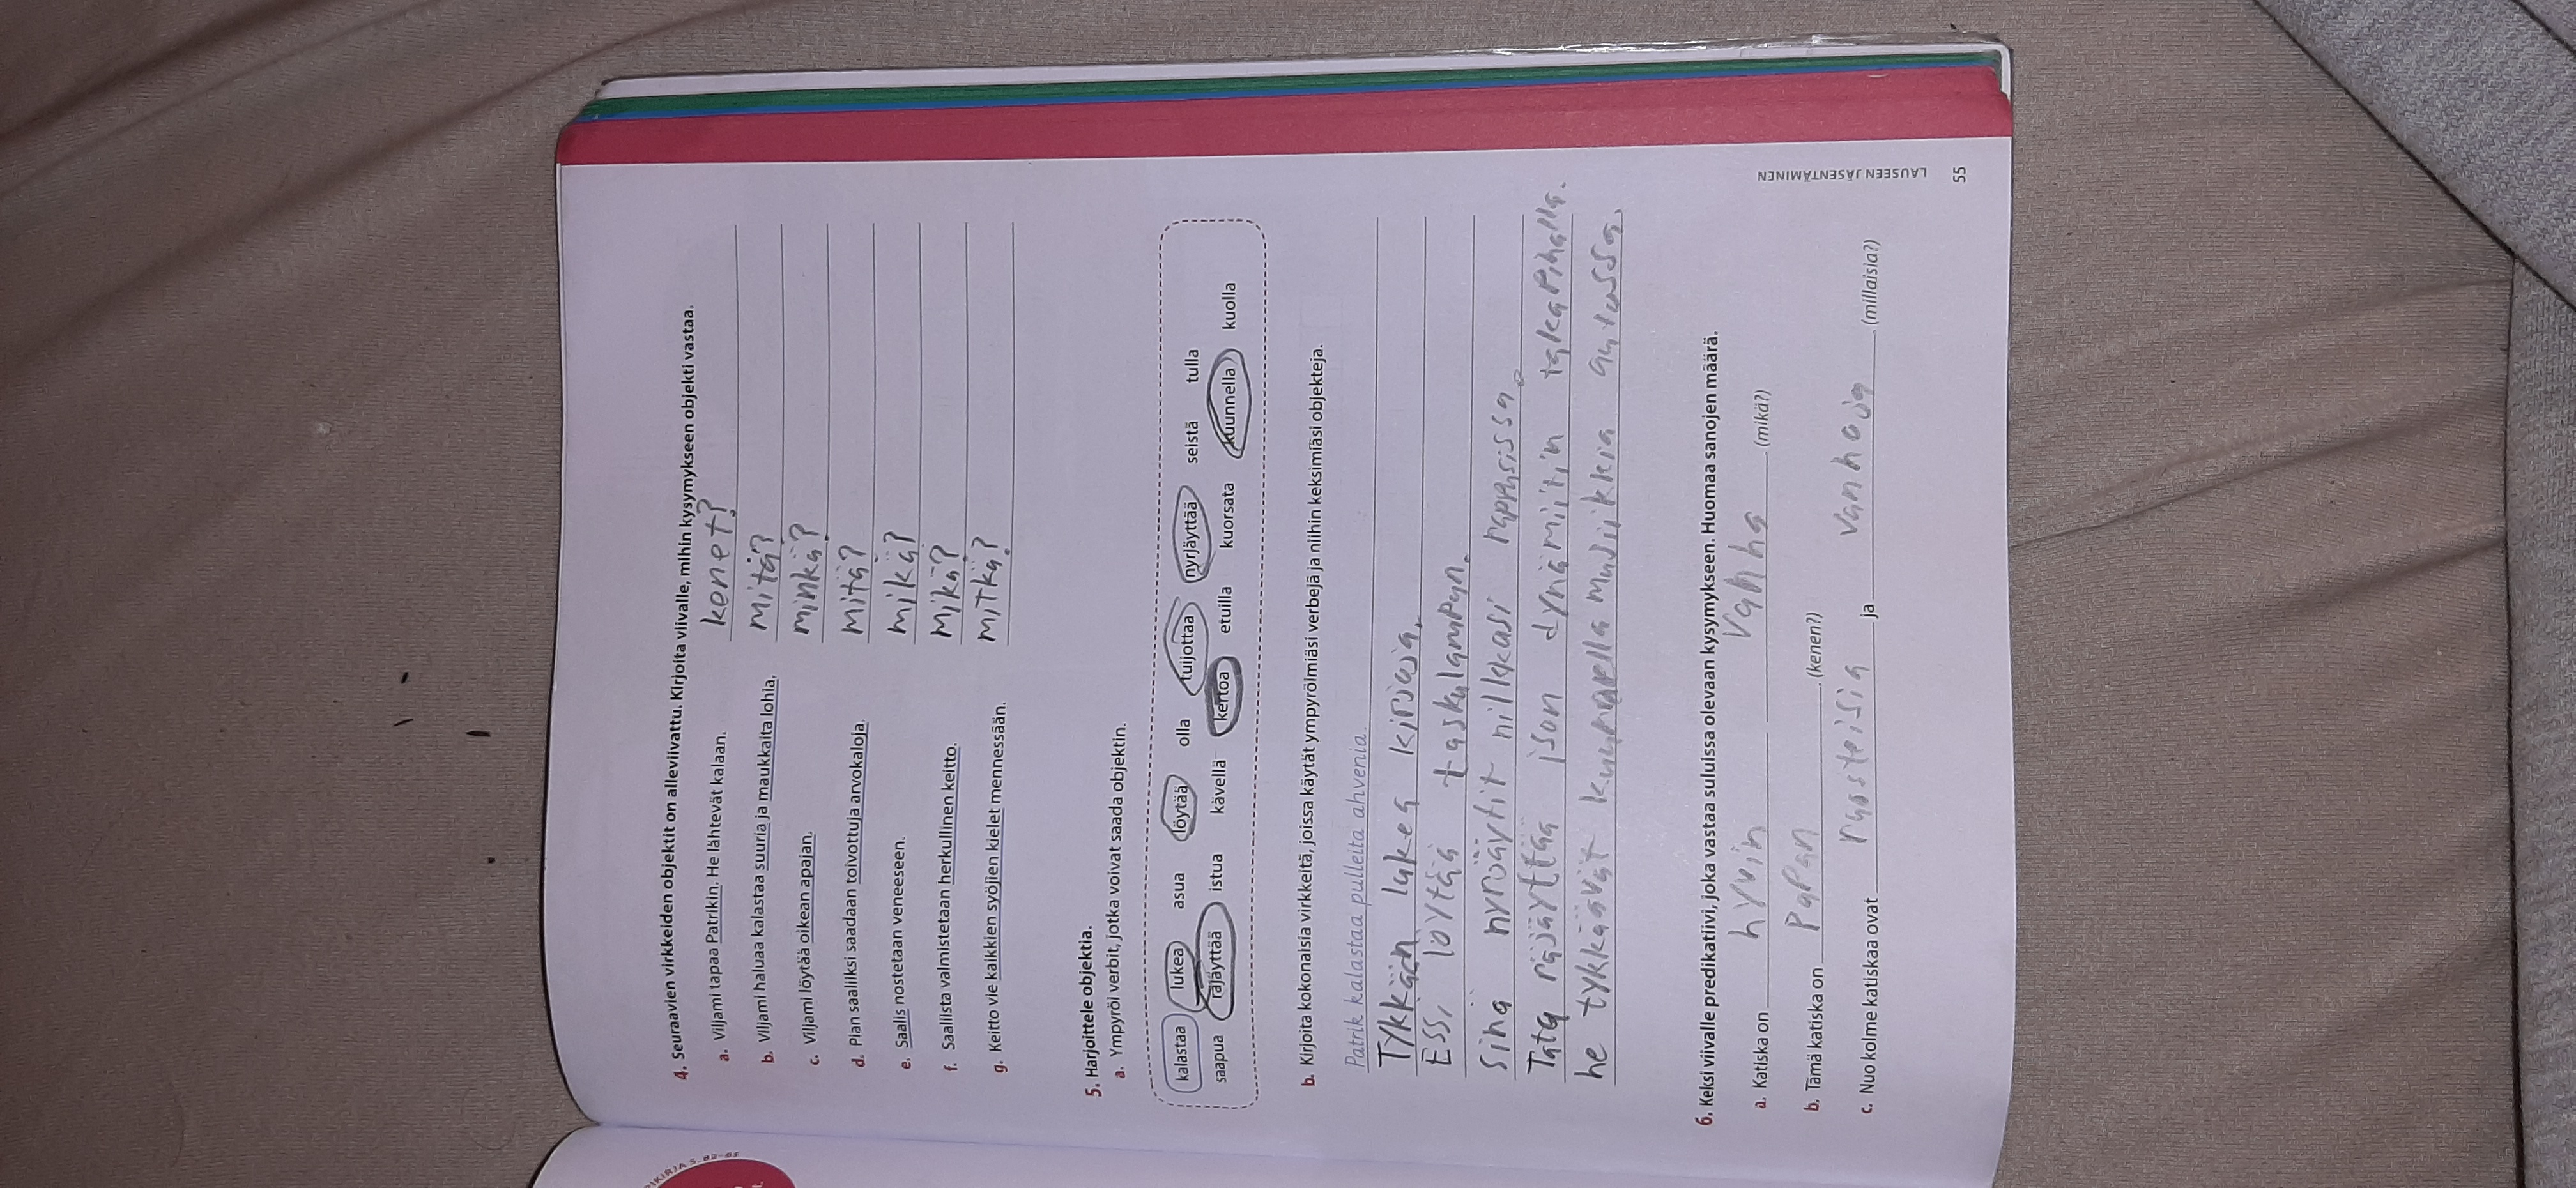 4. Seuraavien virkkeiden objektit on alleviivattu. Kirjoita viivalle, mihin kysymykseen objekti vastaa.
a. Viljami tapaa Patrikin. He lähtevät kalaan. kenet?
b. Viljami haluaa kalastaa suuria ja maukkaita lohia. mitä?
c. Viljami löytää oikean apajan. minkä?
d. Pian saaliiksi saadaan toivottuja arvokaloja. mitä?
e. Saalis nostetaan veneeseen. mikä?
f. Saaliista valmistetaan herkullinen keitto. mikä?
g. Keitto vie kaikkien syöjien kielet mennessään. mitkä?
5. Harjoittele objektia.
a. Ympyröi verbit, jotka voivat saada objektin.
kalastaa lukea asua löytää olla tuijottaa nyrjäyttää seistä tulla
saapua räjäyttää istua kävellä kertoa etuilla kuorsata kuunnella kuolla
b. Kirjoita kokonaisia virkkeitä, joissa käytät ympyröimiäsi verbejä ja niihin keksimiäsi objekteja.
Patrik kalastaa pulleita ahvenia.
Tykkään lukea kirjoja.
Essi löytää taskulampun.
Sinä nyrjäytit nilkkasi rappusissa.
räjäyttää ison dynamiitin takapihalla.
he tykkäävät kuunnella musiikkia autossa.
6. Keksi viivalle predikatiivi, joka vastaa suluissa olevaan kysymykseen. Huomaa sanojen määrä.
a. Katiska on hyvin vanha (mikä?)
b. Tämä katiska on Papan. (kenen?)
c. Nuo kolme katiskaa ovat ruosteisia ja vanhoja. (millaisia?)
LAUSEEN JÄSENTÄMINEN
55